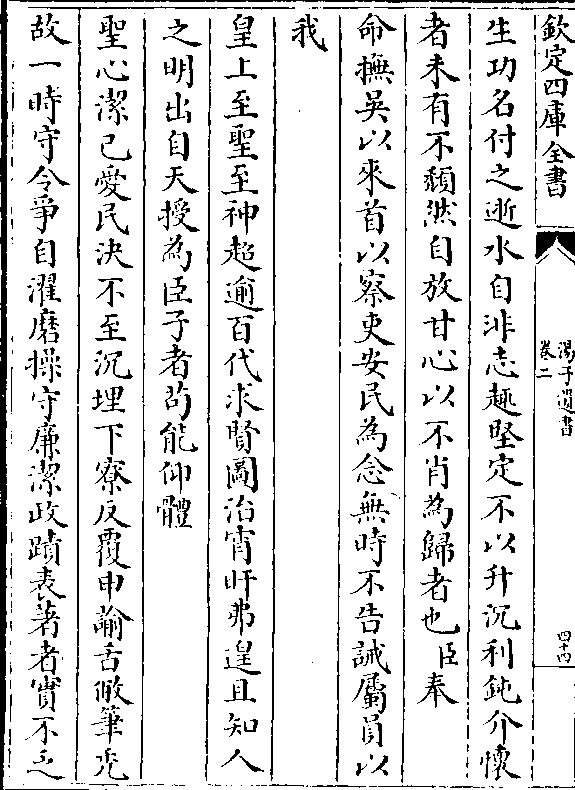 欽定四庫全書
湯子遺書
卷二
四十四
生功名付之逝水自非志趣堅定不以升沉利鈍介懷
者未有不頽然自放甘心以不肖為歸者也臣奉
命撫吳以來首以察吏安民為念無時不告誡屬員以
我
皇上至聖至神超逾百代求賢圖治宵旰弗遑且知人
之明出自天授為臣子者茍能仰體
聖心潔己愛民決不至沉埋下寮反覆申諭舌敝筆秃
故一時守令爭自濯磨操守廉潔政蹟表著者實不乏